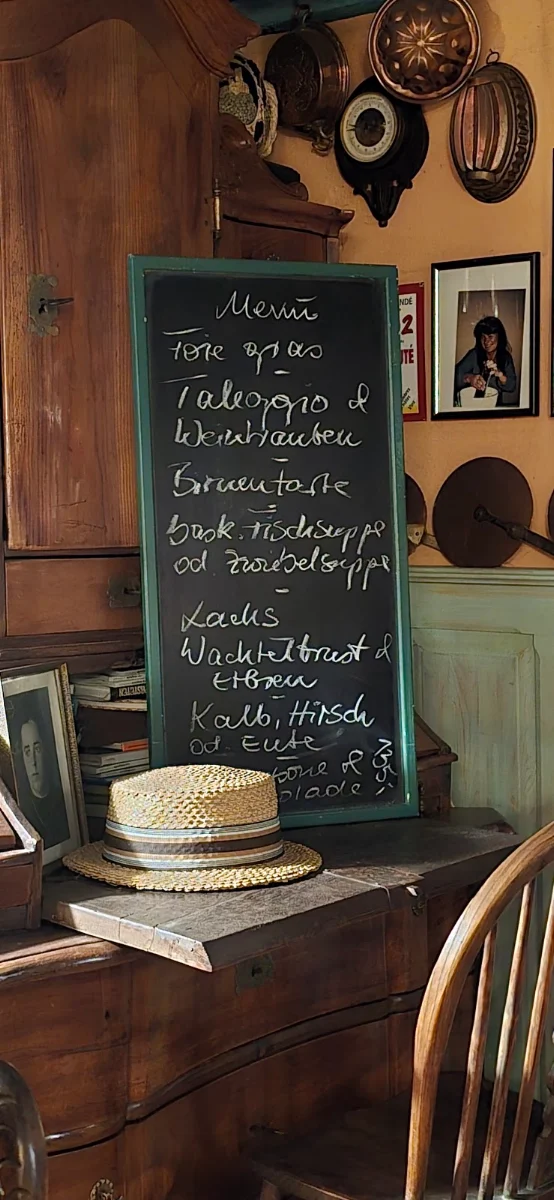 Menü
Foie gras
Taleggio &
Weintrauben
Birnentarte
bask. Fischsuppe
od. Zwiebelsuppe
Lachs
Wachtelbrust &
Erbsen
Kalb, Hirsch
od. Ente
&
olade
NDE
2
TÉ